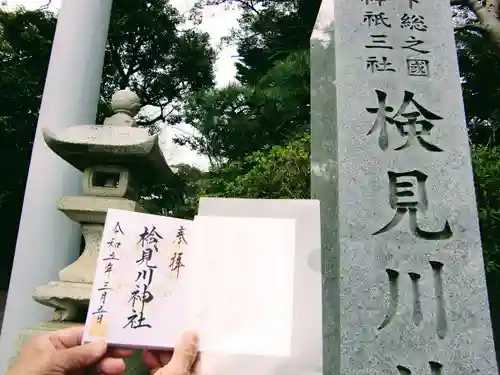 下総之國
神祇三社
検見川
奉拝
検見川神社
令和五年三月五日